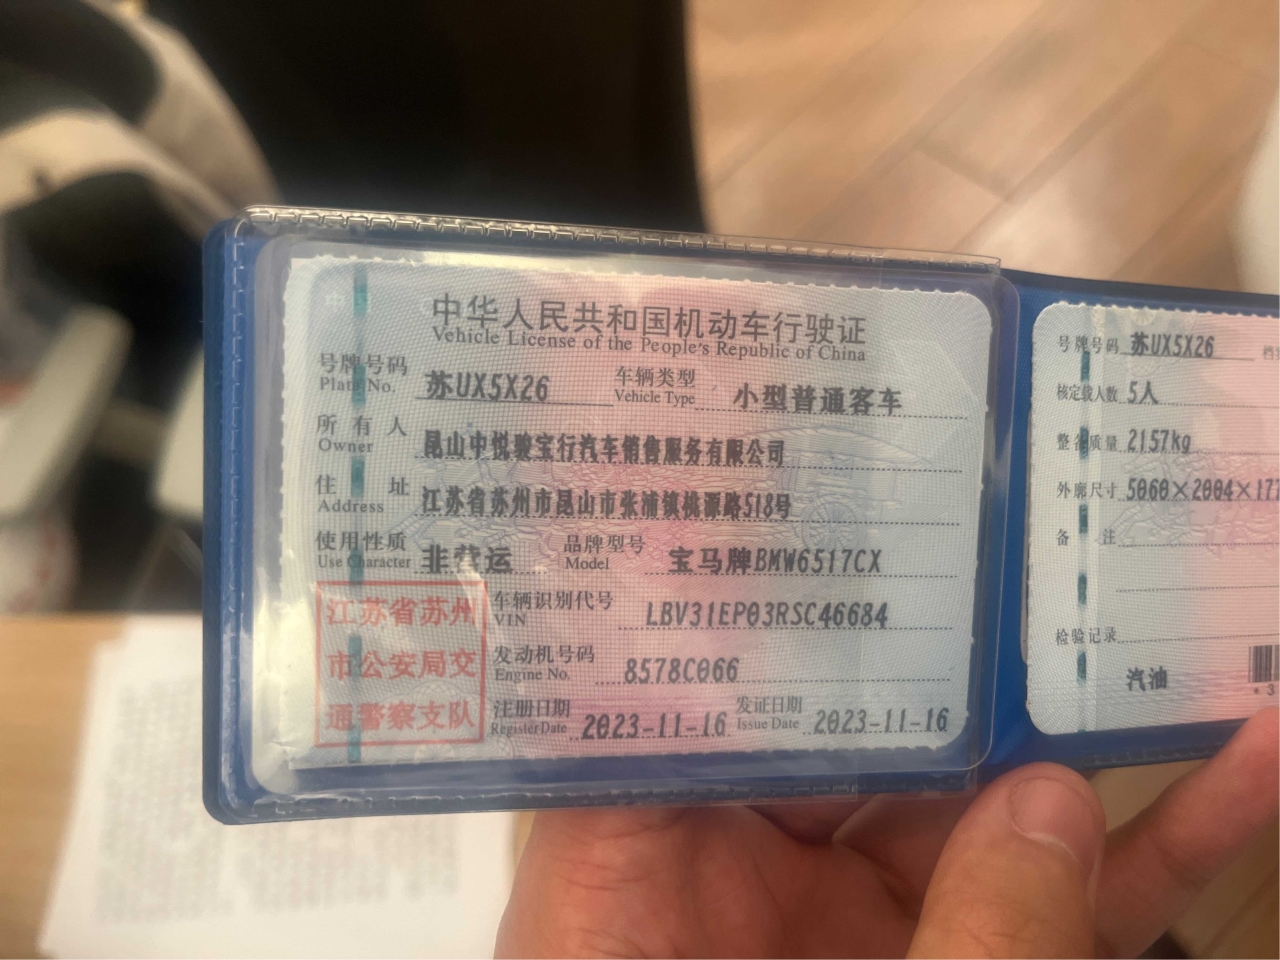 中华人民共和国机动车行驶证
Vehicle License of the People's Republic of China
号牌号码 苏UX5X26 车辆类型 小型普通客车
Plate No. Vehicle Type
所有人 昆山中悦骏宝行汽车销售服务有限公司
Owner
住址 江苏省苏州市昆山市张浦镇桃源路518号
Address
使用性质 非营运 品牌型号 宝马牌BMW6517CX
Use Character Model
江苏省苏州
市公安局交
通警察支队
车辆识别代号 LBV31EP03RSC46684
VIN
发动机号码 8578C066
Engine No.
注册日期 2023-11-16 发证日期 2023-11-16
Register Date Issue Date
号牌号码 苏UX5X26
核定载人数 5人
整备质量 2157kg
外廓尺寸 5060×2004×177
备注
检验记录
汽油